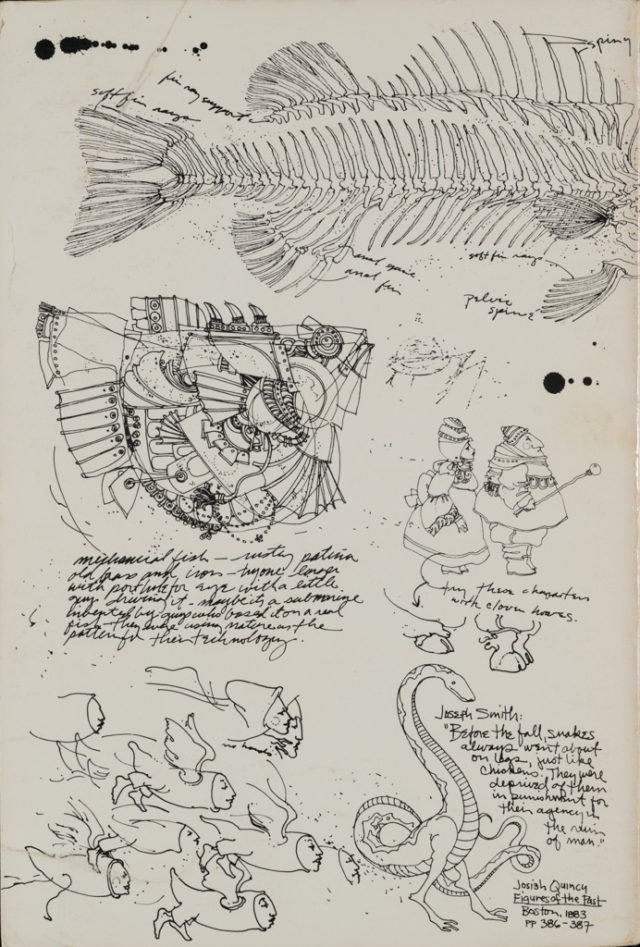 spiny
fin ray support
soft fin rays
anal spine
anal fin
soft fin rays
pelvic
spine
mechanical fish – rusty patina
old brass and iron – huge
with porthole for eye with a little
guy driving it – maybe its a submarine
invented by guys who based it on a real
fish – they were using nature as the
pattern for their technology.
try these characters
with cloven hooves.
no hands
Joseph Smith:
"Before the fall, snakes
always went about
on legs, just like
chickens. They were
deprived of them
in punishment for
their agency in
the ruin
of man."
Josiah Quincy
Figures of the Past
Boston, 1883
pp 386–387